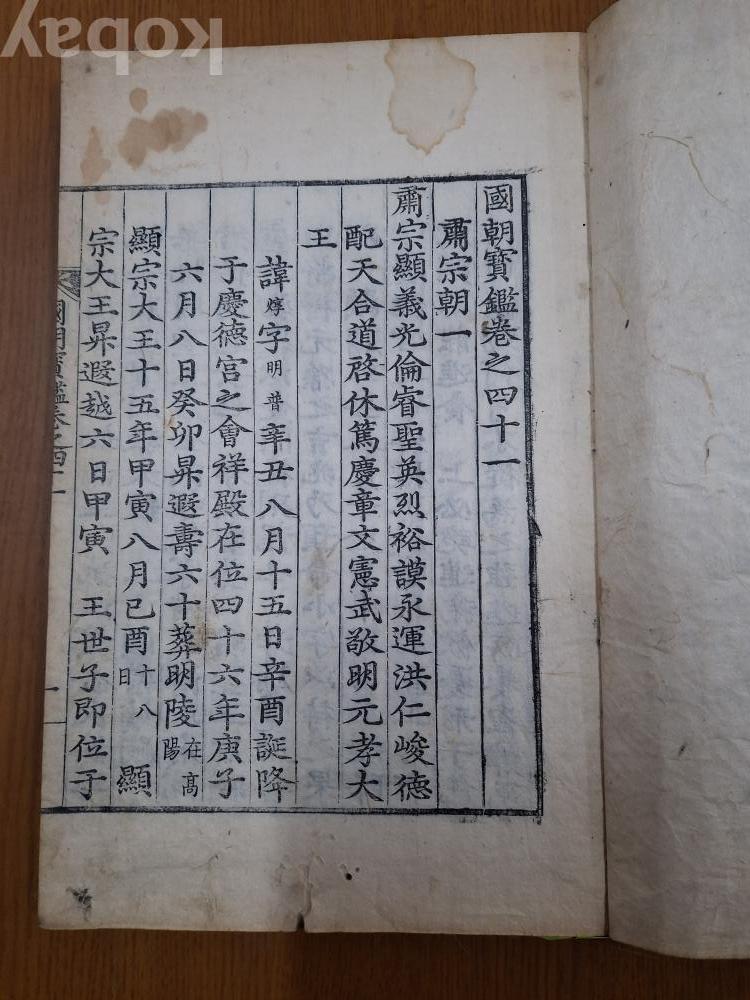 國朝寶鑑卷之四十一
肅宗朝一
肅宗顯義光倫睿聖英烈裕謨永運洪仁峻德
配天合道啓休篤慶章文憲武敬明元孝大
王
諱焞字明普辛丑八月十五日辛酉誕降
于慶德宮之會祥殿在位四十六年庚子
六月八日癸卯昇遐壽六十葬明陵在高陽
顯宗大王十五年甲寅八月己酉十八日 顯
宗大王昇遐越六日甲寅 王世子即位于
國朝寶鑑卷之四十一 一
kobay